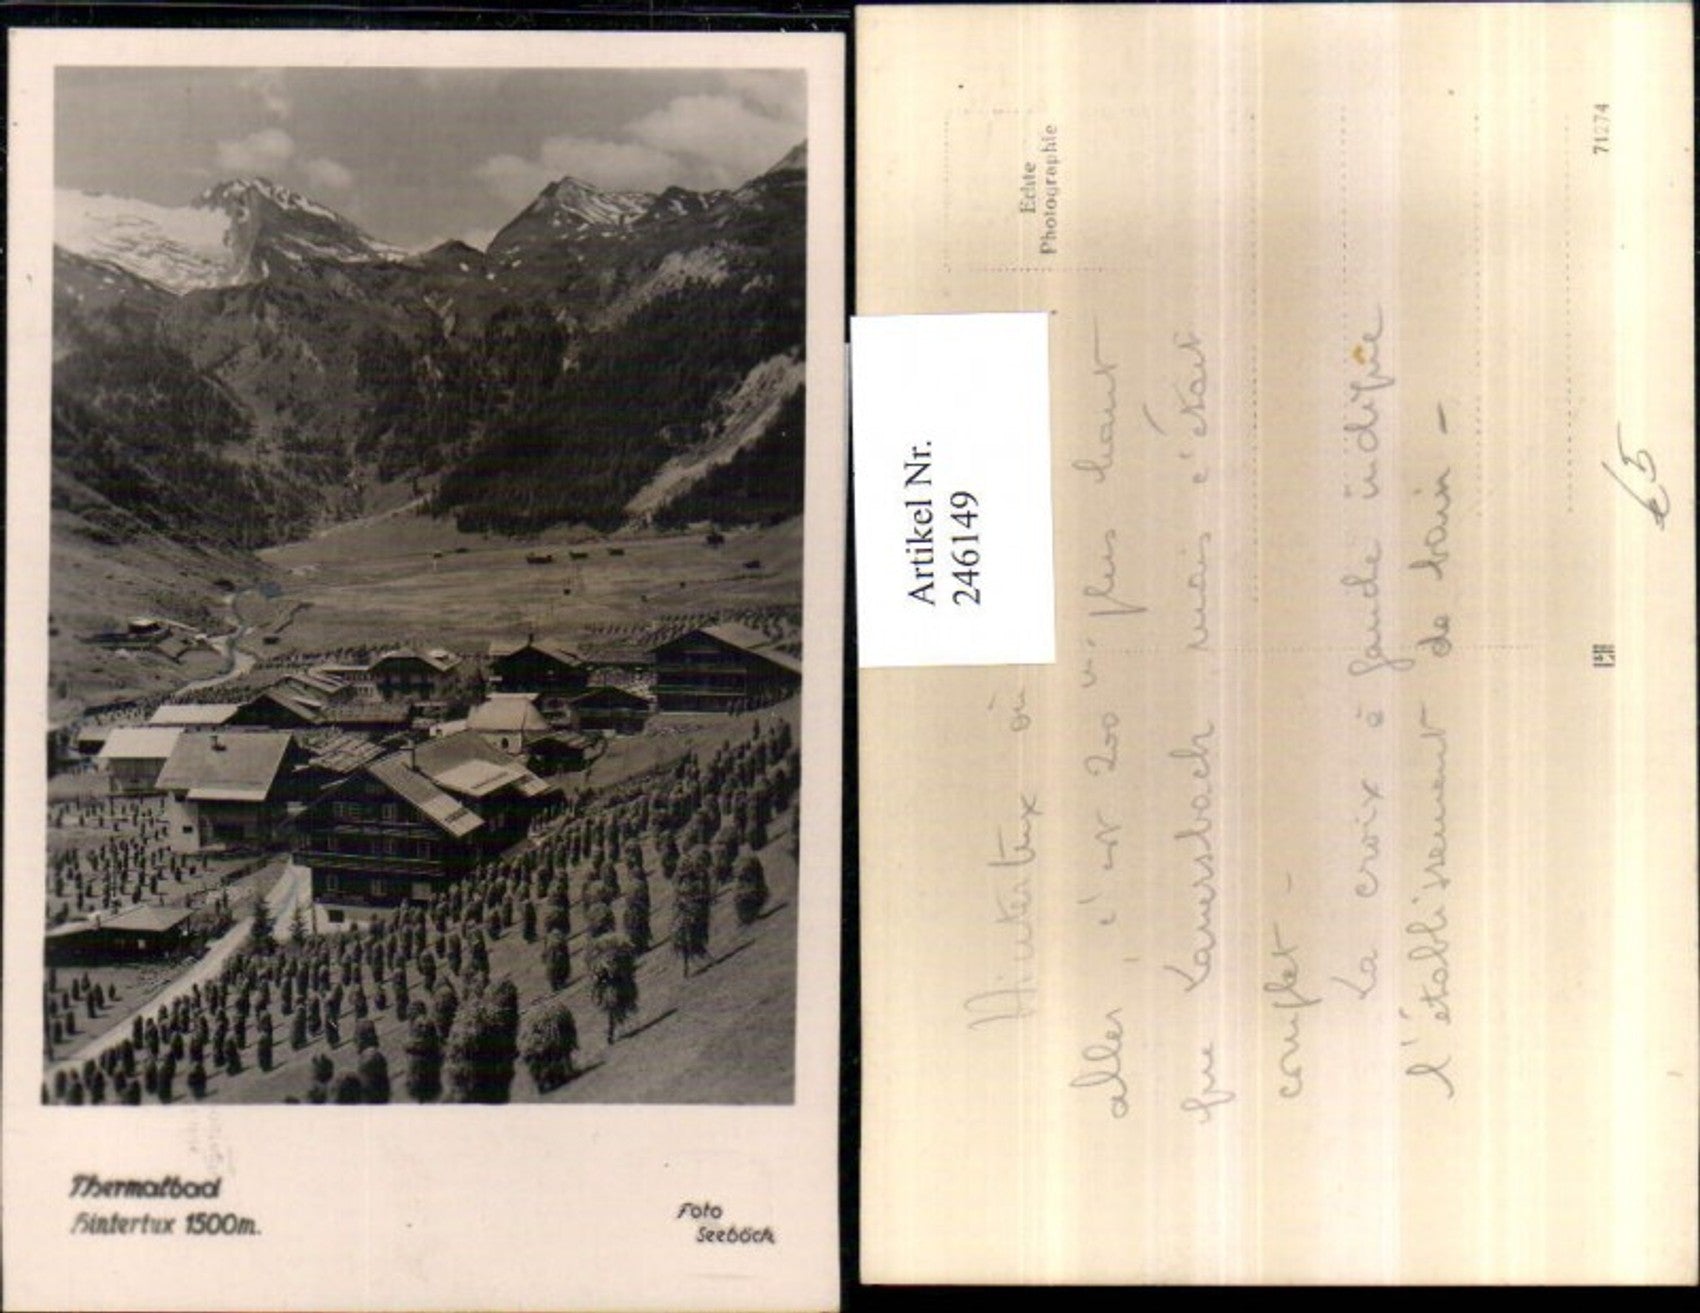 Thermalbad
Hintertux 1500m.
Foto
Seeböck
Echte
Photographie
71274
Artikel Nr.
246149
Hintertux où
aller, c'est 200 m. plus haut
que Lanersbach, mais c'était
complet -
La croix à gauche indique
l'établissement de bain -
€5